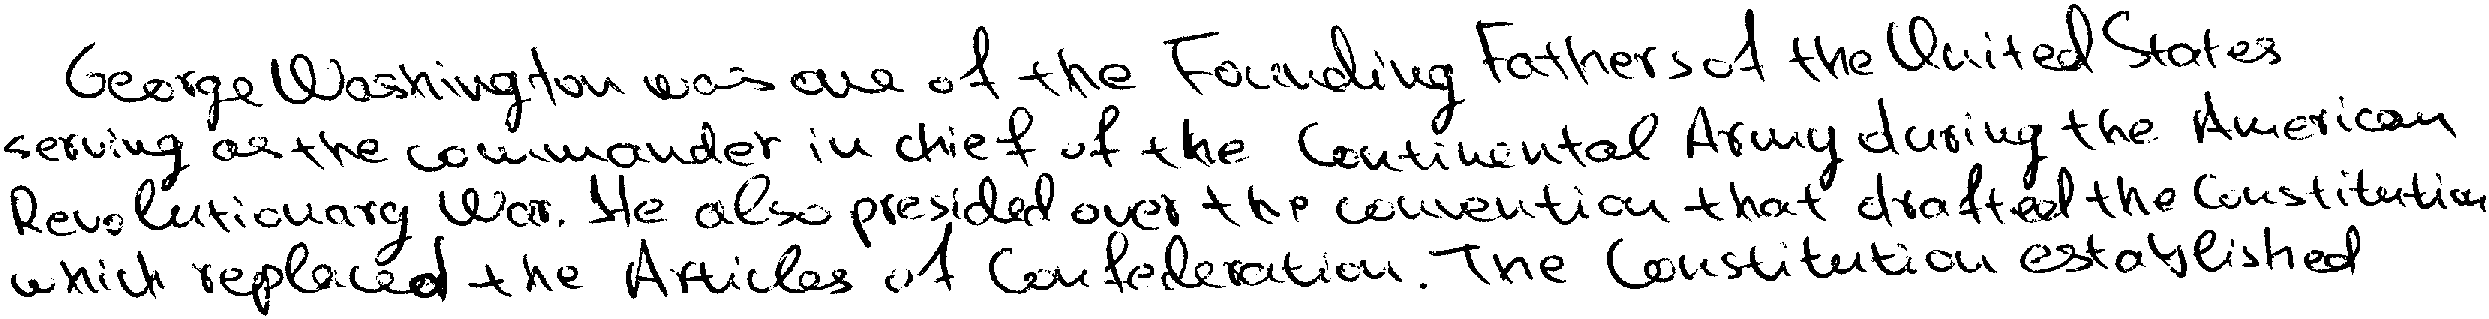 George Washington was one of the Founding Fathers of the United States
serving as the commander in chief of the Continental Army during the American
Revolutionary War. He also presided over the convention that drafted the Constitution
which replaced the Articles of Confederation. The Constitution established